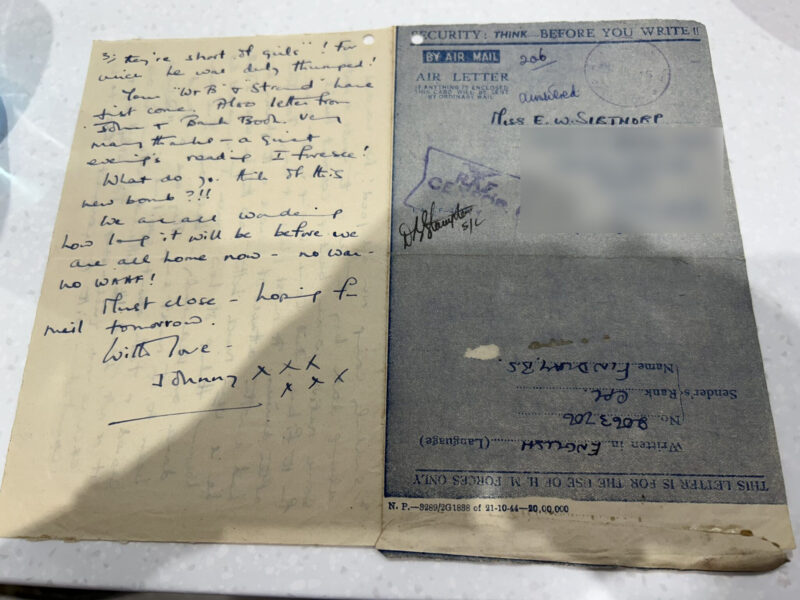 3/ they're short of girls"! For
once he was duly thumped!
Your "W. B" & "Strand" have
just come. Also letter from
John & Bank Book. Very
many thanks - a quiet
evening's reading I foresee!
What do you think of this
new bomb?!!
We are all wondering
how long it will be before we
are all home now - no war -
no WAAF!
Must close - hoping for
mail tomorrow.
With love -
Johnny x x x
x x x
SECURITY: THINK BEFORE YOU WRITE!!
BY AIR MAIL
206
AIR LETTER
IF ANYTHING IS ENCLOSED
THIS CARD WILL BE SENT
BY ORDINARY MAIL
answered
MISS E. W. SIBTHORP
R.A.F.
CENSOR
S/L
Name FINDLAY, B.S.
Sender's Rank CPL
No. 2063706
Written in ENGLISH (Language)
THIS LETTER IS FOR THE USE OF H. M. FORCES ONLY
N. P.—8289/2G1888 of 21-10-44—20,00,000